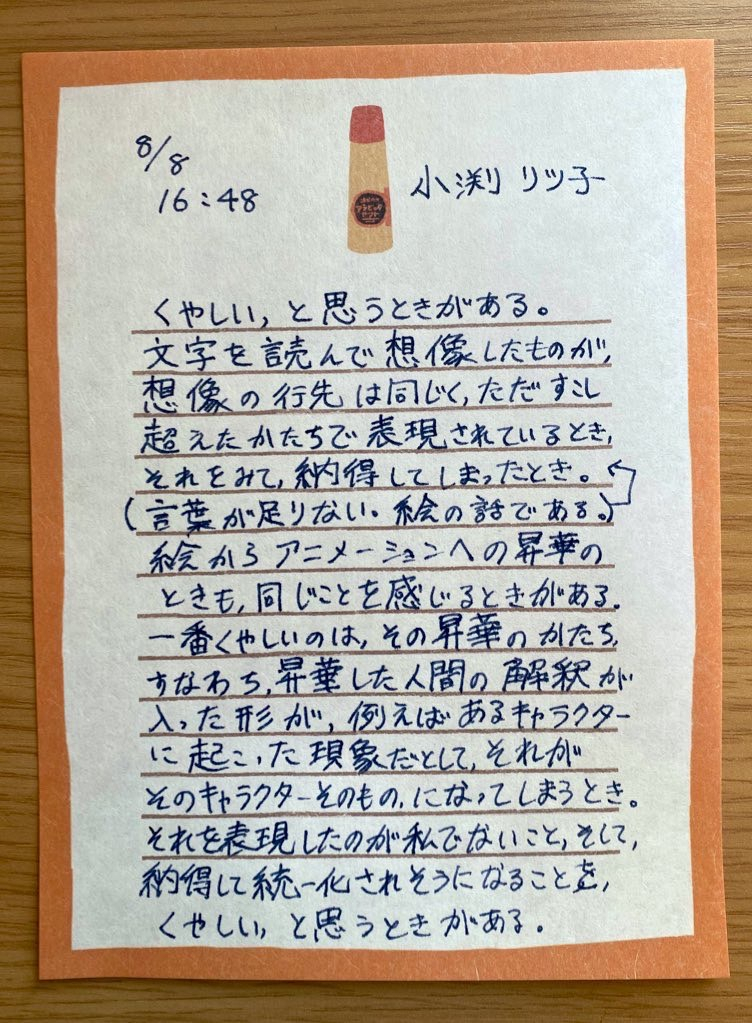 8/8
16:48
小渕 リツ子
くやしい, と思うときがある。
文字を読んで想像したものが,
想像の行先は同じく, ただすこし
超えたかたちで表現されているとき,
それをみて, 納得してしまったとき。
(言葉が足りない。絵の話である。)
絵からアニメーションへの昇華の
ときも, 同じことを感じるときがある。
一番くやしいのは, その昇華のかたち,
すなわち, 昇華した人間の解釈が
入った形が, 例えばあるキャラクター
に起こった現象だとして, それが
そのキャラクターそのもの, になってしまうとき。
それを表現したのが私でないこと, そして,
納得して統一化されそうになることを,
くやしい, と思うときがある。